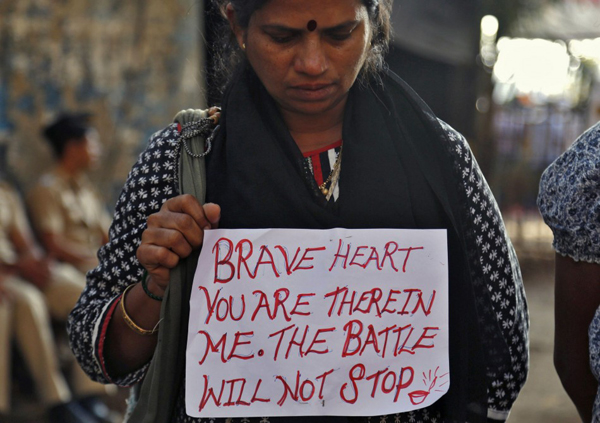 BRAVE HEART
YOU ARE THEREIN
ME. THE BATTLE
WILL NOT STOP